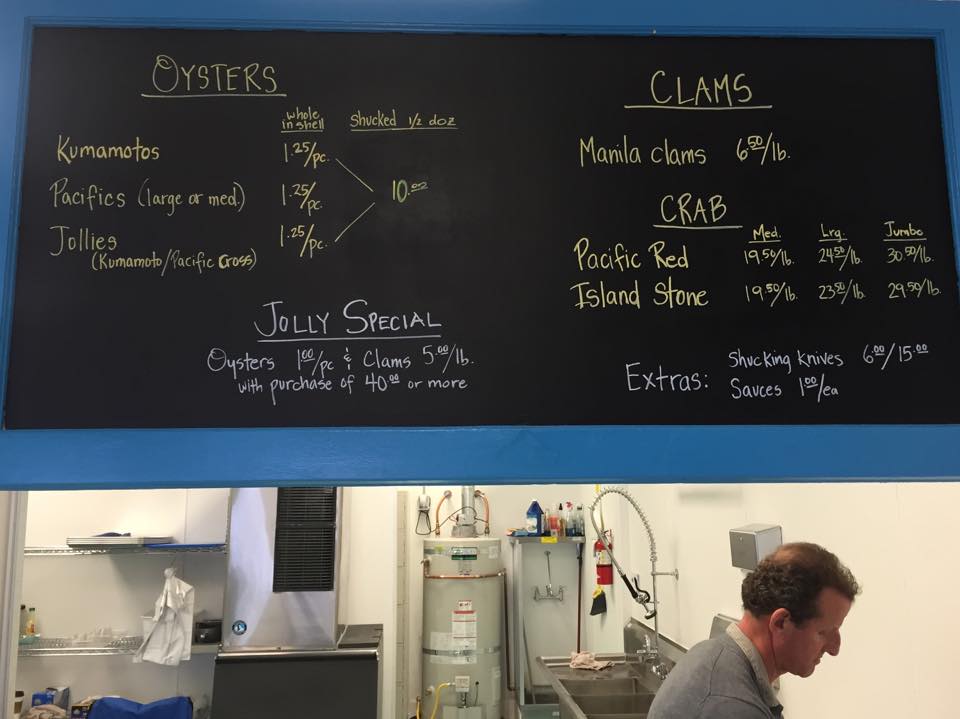 OYSTERS
whole in shell
shucked 1/2 doz
Kumamotos 1.25/pc.
Pacifics (large or med.) 1.25/pc. 10.00
Jollies 1.25/pc.
(Kumamoto/Pacific Cross)
JOLLY SPECIAL
Oysters 1.00/pc & Clams 5.00/lb.
with purchase of 40.00 or more
CLAMS
Manila clams 6.50/lb.
CRAB
Med. Lrg. Jumbo
Pacific Red 19.50/lb. 24.50/lb. 30.50/lb.
Island Stone 19.50/lb. 23.50/lb. 29.50/lb.
Extras: Shucking knives 6.00/15.00
Sauces 1.00/ea